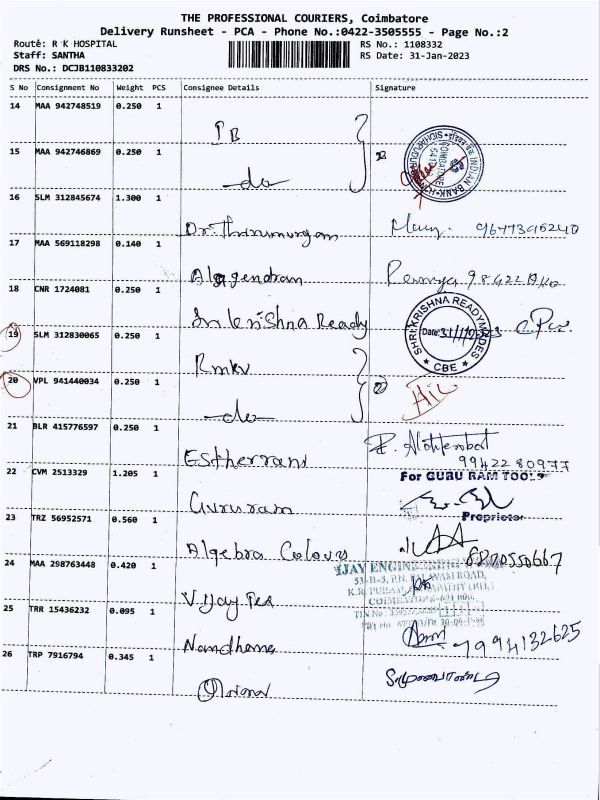 THE PROFESSIONAL COURIERS, Coimbatore
Delivery Runsheet - PCA - Phone No.:0422-3505555 - Page No.:2
Route: R K HOSPITAL
RS No.: 1108332
Staff: SANTHA
RS Date: 31-Jan-2023
DRS No.: DCJB110833202
S No Consignment No Weight PCS Consignee Details Signature
14 MAA 942748519 0.250 1 IB
15 MAA 942746869 0.250 1 do
INDIAN BANK
16 SLM 312845674 1.300 1 Dr. Thirumurgan
17 MAA 569118298 0.140 1 Alagendran
18 CNR 1724081 0.250 1 Sri krishna Ready
SHRI KRISHNA READYMADES
Date: 31/1/2023
CBE
19 SLM 312830065 0.250 1 Rmkv
20 VPL 941440034 0.250 1 do
21 BLR 415776597 0.250 1 Estherrani
9942280977
22 CVM 2513329 1.205 1 Gururam
For GURU RAM TOOLS
Proprietor
23 TRZ 56952571 0.560 1 Algebra Colours
24 MAA 298763448 0.420 1 Vijay Tex
25 TRR 15436232 0.095 1 Nandhana
7994132625
26 TRP 7916794 0.345 1